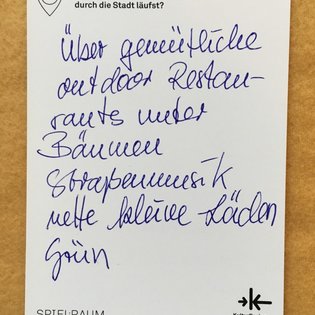 durch die Stadt läufst?
Über gemütliche
outdoor Restau-
rants unter
Bäumen
Straßenmusik
nette kleine Läden
Grün
SPIEL:RAUM